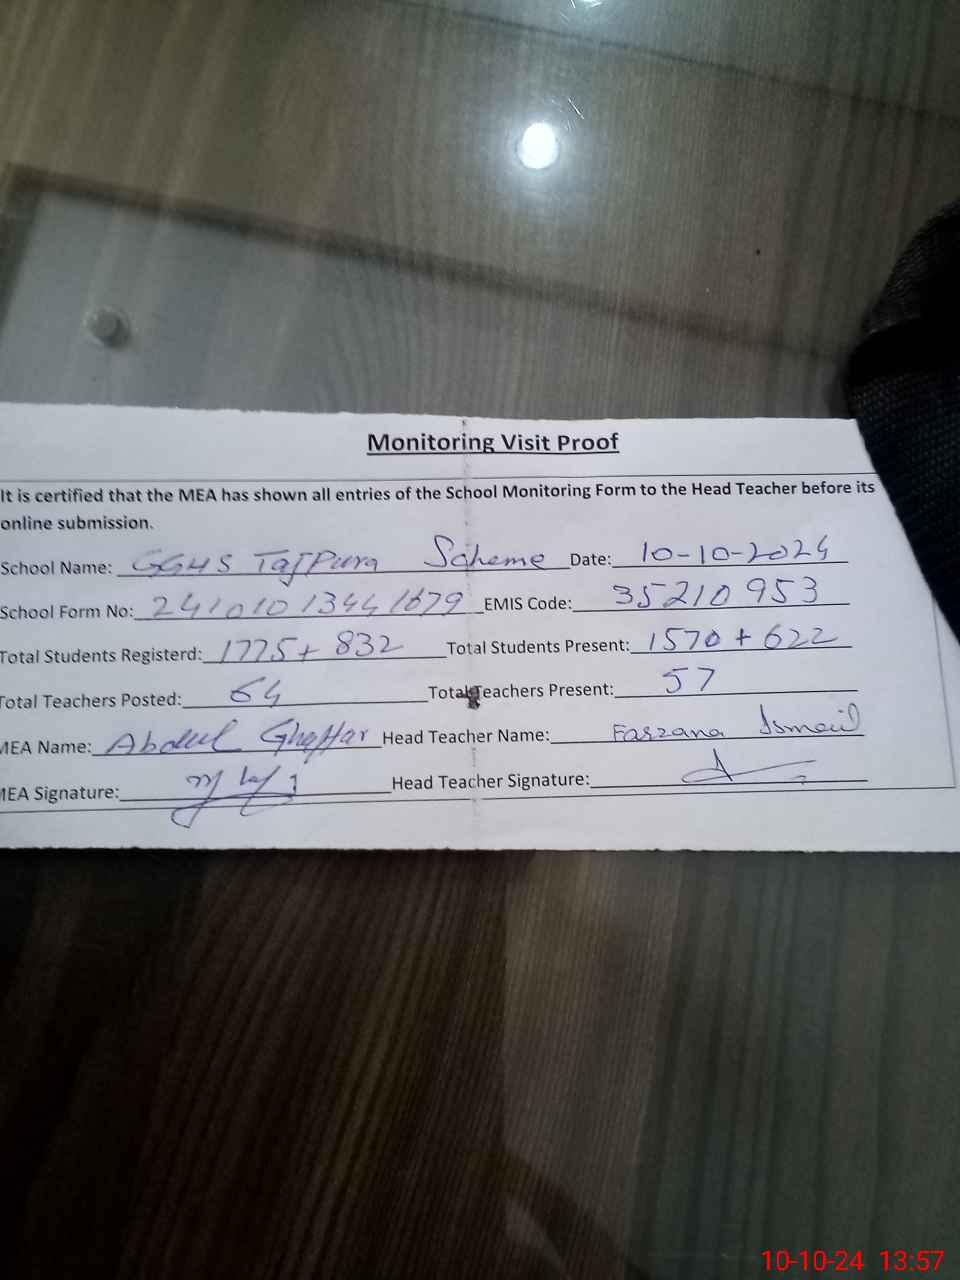 Monitoring Visit Proof
It is certified that the MEA has shown all entries of the School Monitoring Form to the Head Teacher before its
online submission.
School Name: GGHS TajPura Scheme Date: 10-10-2024
School Form No: 24101013441679 EMIS Code: 35210953
Total Students Registerd: 1775 + 832 Total Students Present: 1570 + 622
Total Teachers Posted: 64 Total Teachers Present: 57
MEA Name: Abdul Ghaffar Head Teacher Name: Farzana Ismail
MEA Signature: Head Teacher Signature:
10-10-24 13:57